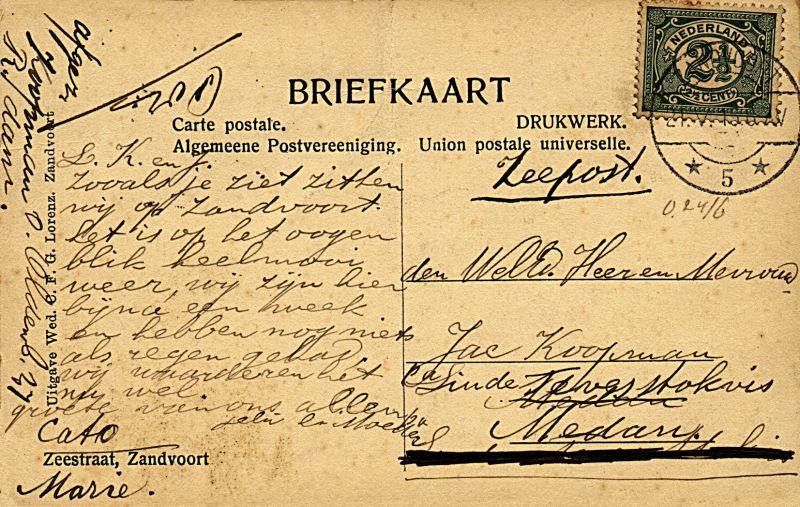 BRIEFKAART
Carte postale.
DRUKWERK.
Algemeene Postvereeniging.
Union postale universelle.
NEDERLAND
2½
2½ CENT
5
Zeepost.
0.24/6
L. K. en J.
Zooals je ziet zitten
wij op Zandvoort
Het is op het oogen
blik heel mooi
weer, wij zijn hier
bijna een week
en hebben nog niets
als regen gehad
wij waardeeren het
nu wel
groete van ons allen
en Moeder
Cato
Marie.
Zeestraat, Zandvoort
den WelEd. Heer en Mevrouw
Jac Koopman
Linde Teves Stokvis
Medan
Uitgave Wed. C. F. G. Lorenz. Zandvoort
afgez.
Koopman
R'dam.